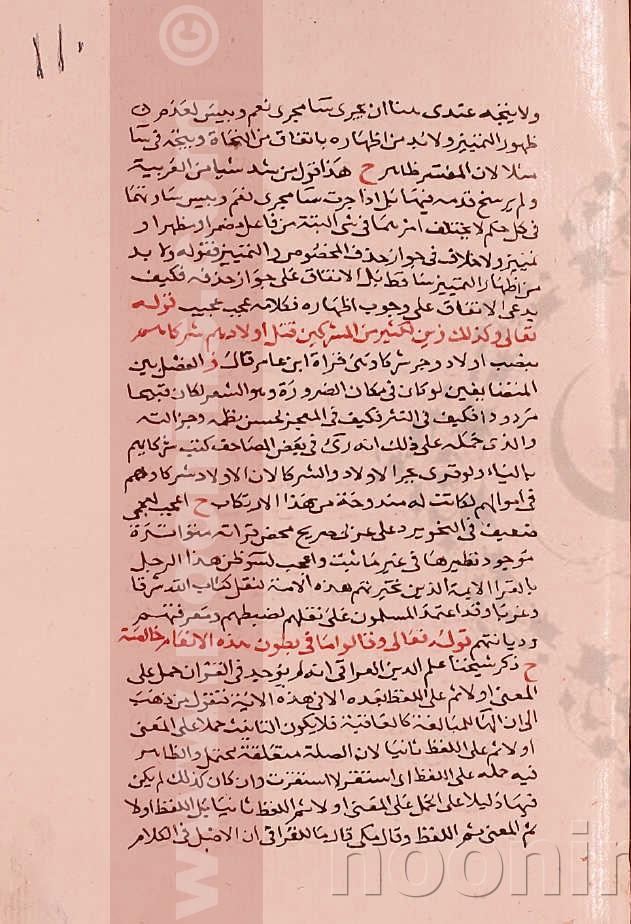 ١١٠
ولا يتجه عندى هنا ان يجرى سا مجرى نعم وبيس لعدم
ظهور التمييز ولا بد من اظهاره باتفاق من النحاة ويتجه في سا
مثلا لان المفسر ظاهر ح هذا قول من شدا شيا من العربية
ولم يرسخ قدمه فيها بل اذا جرت سا مجرى نعم وبيس سا وتهما
في كل حكم لا يختلف امرهما في شى البتة من فاعل مضمر او ظهر او
تمييز ولا خلاف في جواز حذف المخصوص والتمييز فقوله ولا بد
من اظهار التمييز ساقط بل الاتفاق على جواز حذفه فكيف
يدعى الاتفاق على وجوب اظهاره فكلامه عجب عجيب قوله
تعالى وكذلك زين لكثير من المشركين قتل اولادهم شركاؤهم
بنصب اولاد وجر شركاوهى قراة ابن عامر قال ز الفصل بين
المتضايفين لو كان في مكان الضرورة وهو الشعر لكان قبيحا
مردودا فكيف في النثر فكيف في المعجز لحسن نظمه وجزالته
والذى حمله على ذلك انه رءى في بعض المصاحف كتب شركايهم
باليا ولو قرى بجر الاولاد والشركا لان الاولاد شركاوهم
في اموالهم لكانت له مندوحة من هذا الارتكاب ح اعجب لعجمى
ضعيف في النحو يرد على عربى صريح محض قراته متواترة
موجود نظيرها في غير ما ثبت واعجب لسو ظن هذا الرجل
بالقرا الايمة الذين تخيرتهم هذه الامة لنقل كتاب الله شرقا
وغربا وقد اعتمد المسلمون على نقلهم لضبطهم ومعرفتهم
وديانتهم قوله تعالى وقالوا ما في بطون هذه الانعام خالصة
ح ذكر شيخنا علم الدين العراقي انه لم يوجد في القران حمل على
المعنى اولا ثم على اللفظ بعده الا في هذه الاية فنقول من ذهب
الى ان الها للمبالغة كالعاقبة فلا يكون التانيث حملا على المعنى
اولا ثم على اللفظ ثانيا لان الصلة متعلقة بحتمل والظاهر
فيه حمله على اللفظ اى استقر لا استقرت وان كان كذلك لم يكن
فيها دليلا على الحمل على المعنى اولا ثم اللفظ ثانيا بل اللفظ اولا
ثم المعنى ثم اللفظ وقال مكى قال ما للقرافى ان الاصل في الكلام